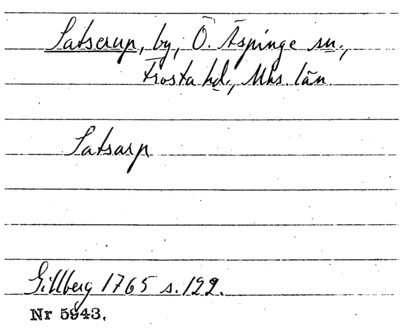 Satserup, by, Ö. Äspinge sn.,
Frosta hd., Mhs. län.
Satsarp
Gillberg 1765 s. 122.
Nr 5943.